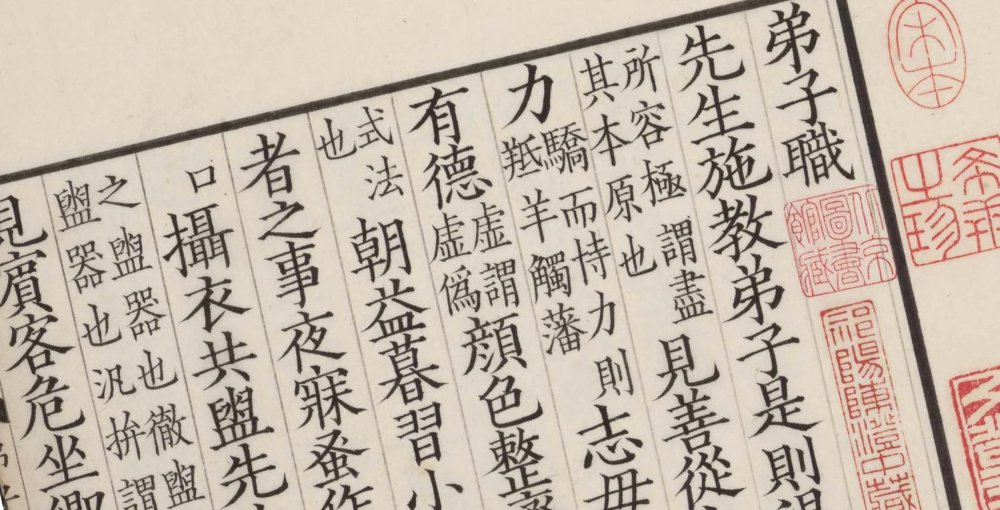 宋本
希世之珍
弟子職
北京圖書館藏
祁陽陳澄中藏
先生施教弟子是則
所容極謂盡
其本原也
見善從
力
驕而恃力則
羝羊觸藩
志毋
有德
虛謂
虛僞
顔色整
式法
也
朝益暮習小
者之事夜寐蚤作
口
攝衣共盥先
之盥器也徹盥
盥器也汎拚謂
見賓客危坐鄉